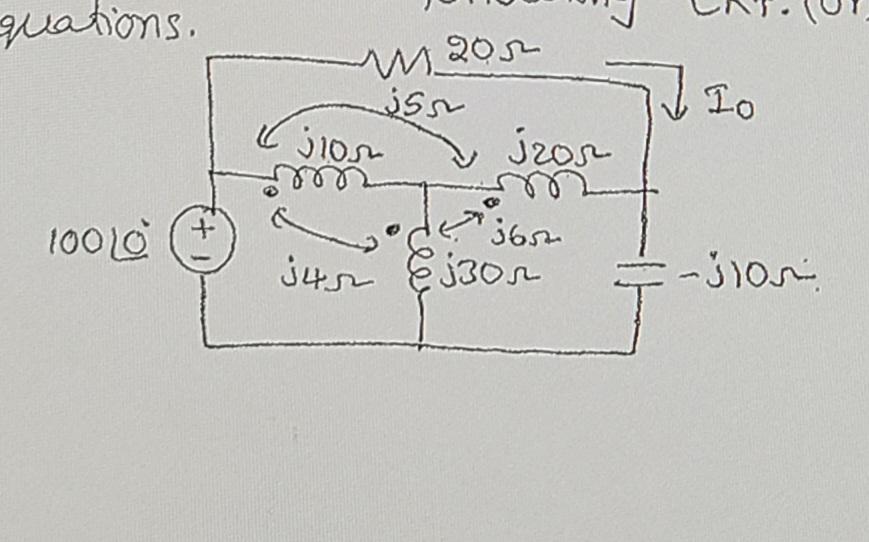 quations.
20Ω
I0
j5Ω
j10Ω
j20Ω
100∠0°
+
-
j4Ω
j6Ω
j30Ω
-j10Ω.